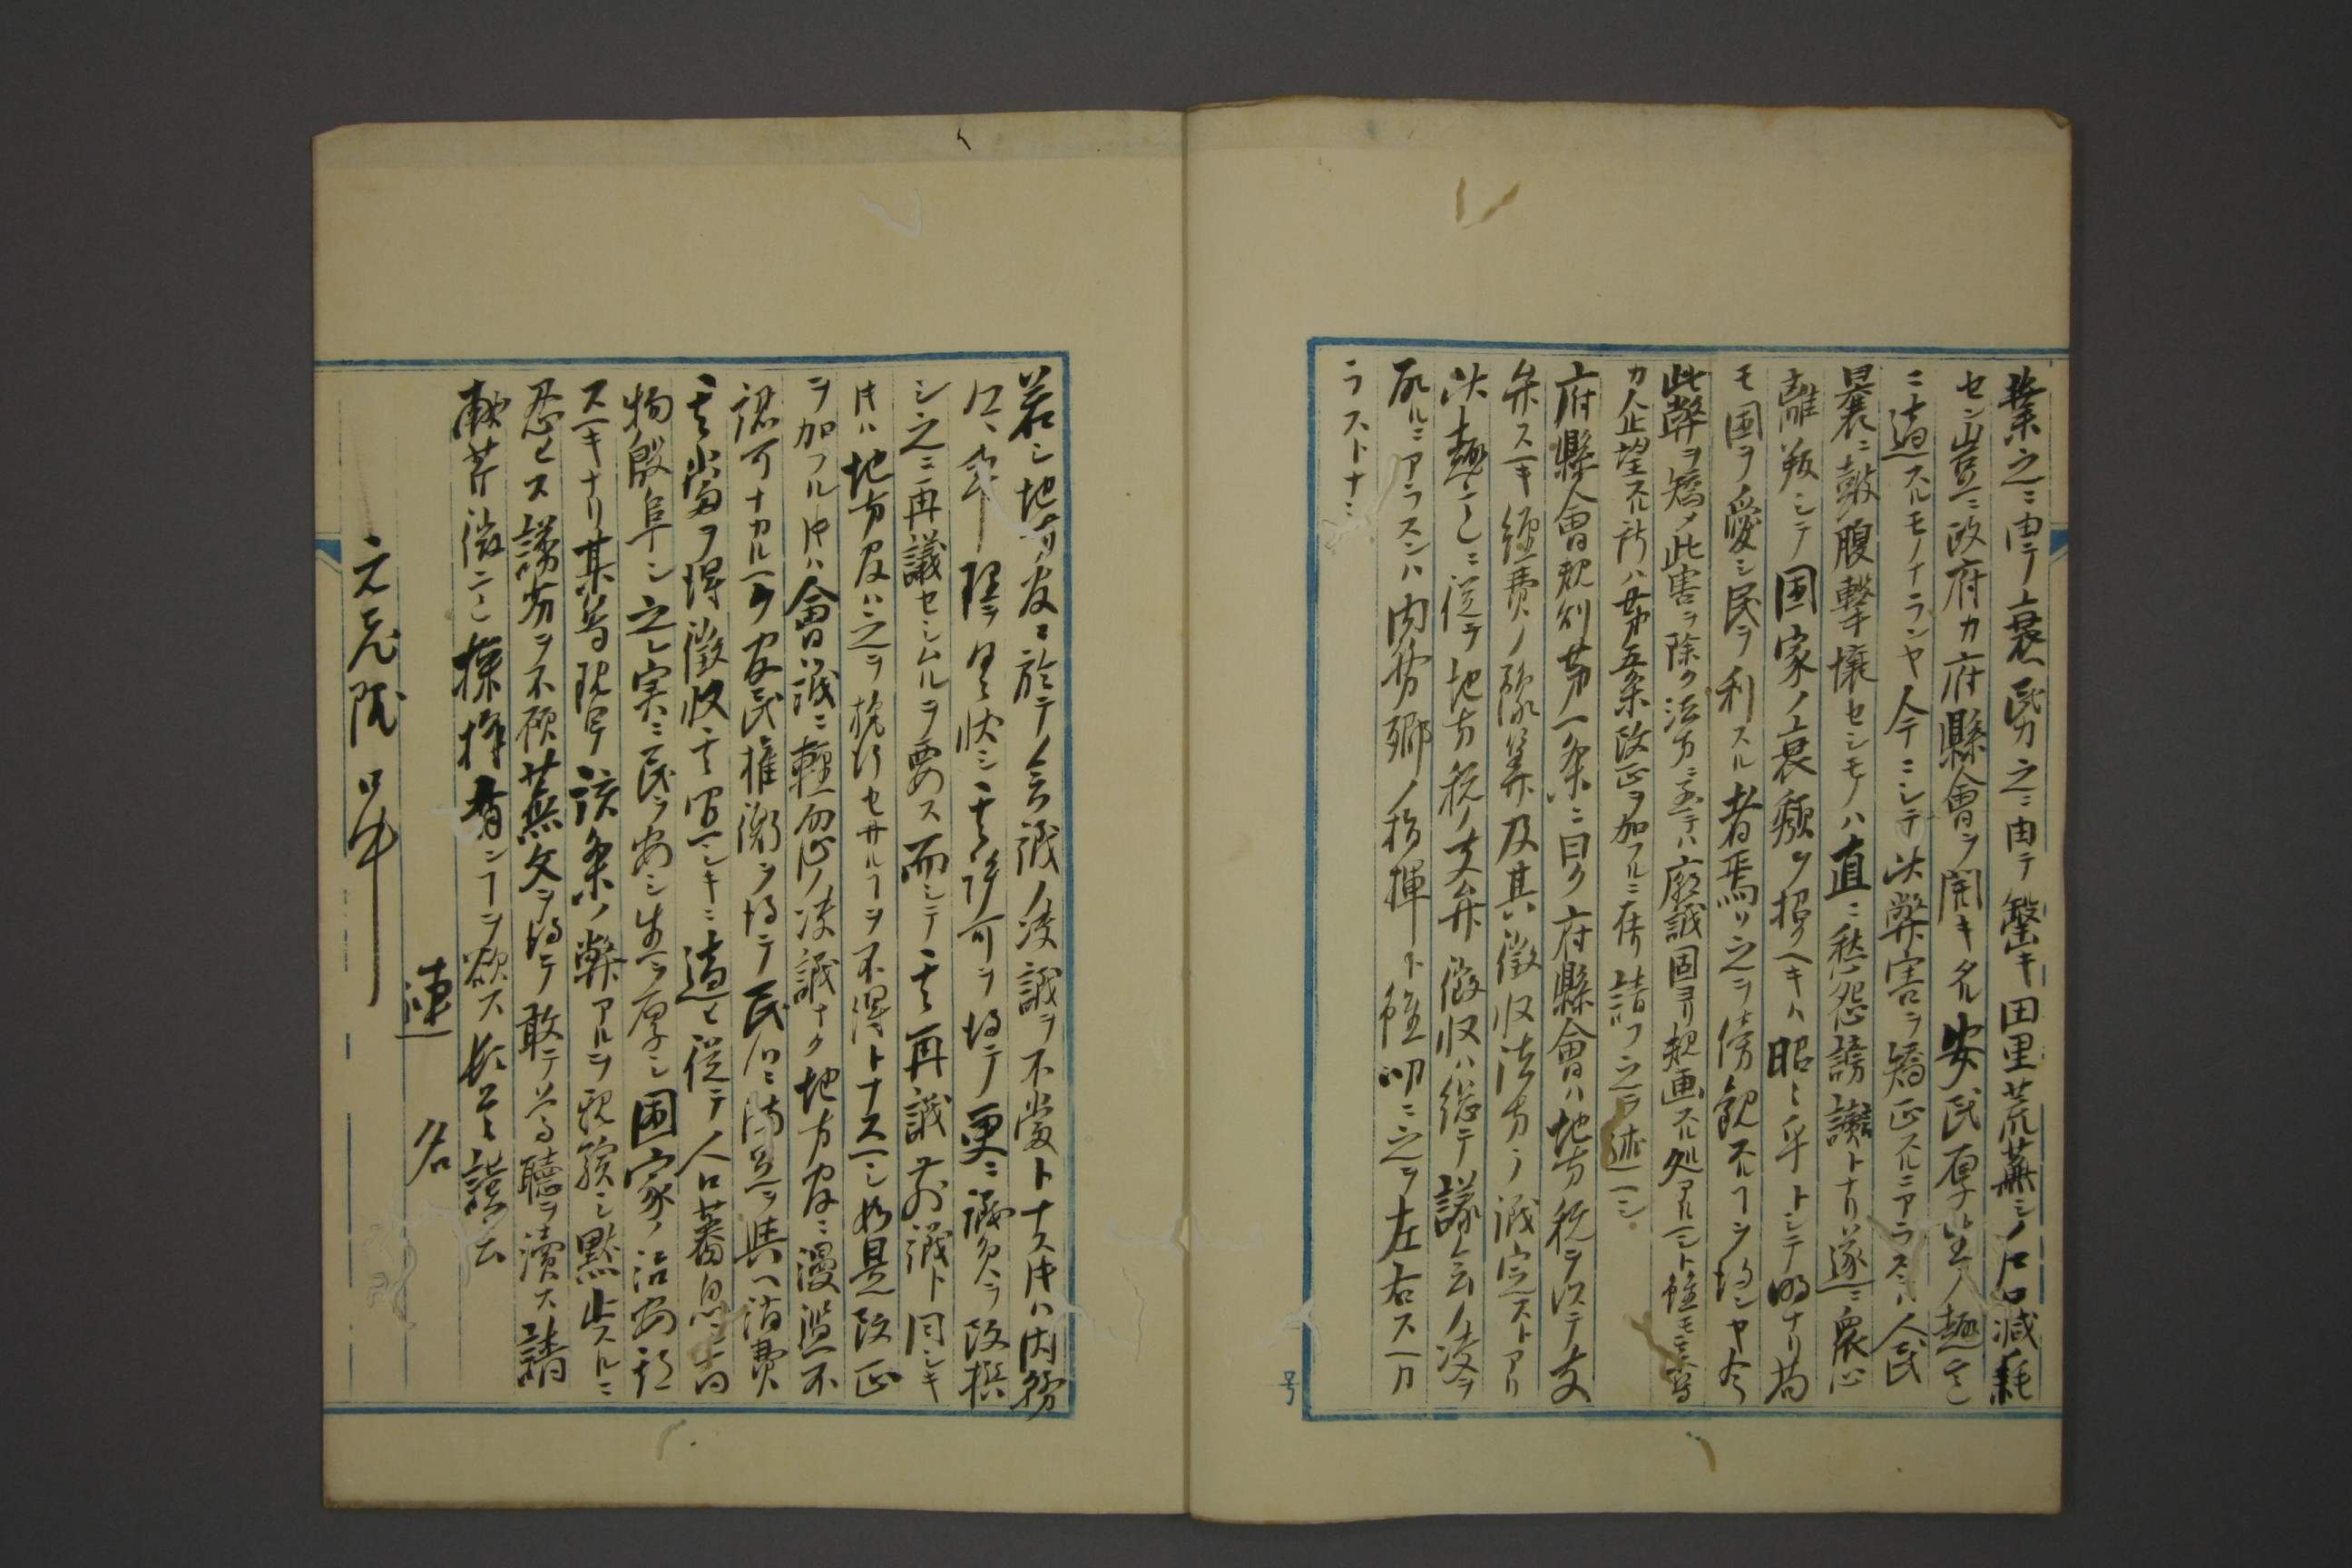 業之ニ由テ衰ヘ民力之ニ由テ罄キ田里荒蕪シ戸口減耗
セン豈ニ政府カ府縣會ヲ開キタル安民厚生ノ趣意
ニ適スルモノナランヤ今ニシテ此弊害ヲ矯正スルニアラスンハ人民
曩ニ鼓腹撃壌セシモノハ直ニ愁怨謗讟トナリ遂ニ衆心
離叛シテ国家ノ衰頽ヲ招クヘキハ昭々乎トシテ明ナリ苟
モ国ヲ愛シ民ヲ利スル者焉ソ之ヲ傍観スルヿヲ得ンヤ今
此弊ヲ矯メ此害ヲ除ク法方ニ至テハ廟議固ヨリ規画スル処アルヘシト雖モ某等
カ企望スル所ハ第五条改正ヲ加フルニ在リ請フ之ヲ述ヘン
府縣會規則第一条ニ曰ク府縣會ハ地方税ヲ以テ支
弁スヘキ経費ノ豫算及其徴収法方ヲ議定ストアリ
此趣意ニ従テ地方税ノ支弁徴収ハ総テ議会ノ決ヲ
取ルニアラスンハ内務卿ノ指揮ト雖叨ニ之ヲ左右スヘカ
ラストナシ
号
若シ地方官ニ於テ会議ノ決議ヲ不當トナス片ハ内務
卿ニ理ヲ具状シ其許可ヲ得テ更ニ議案ヲ改撰
シ之ニ再議セシムルヲ要ス而シテ其再議前議ト同シキ
片ハ地方官ハ之ヲ執行セサルヿヲ不得トナスヘシ如是改正
ヲ加フル片ハ會議ニ軽忽ノ決議ナク地方官ニ漫濫不
認可ナカルヘク官民権衡ヲ得テ民心満足ヲ與ヘ諸費
其當ヲ得徴収其宜シキニ適ヒ従テ人口蕃息シ
物殷阜シ之レ実ニ民ヲ安シ生ヲ厚シ国家ノ治安ヲ
スヘキナリ某等現ニ該条ノ弊アルヲ親験シ黙止スルニ
忍ヒス謭劣ヲ不顧蕪文ヲ綴テ敢テ尊聴ヲ瀆ス請
献芹微意採擇有ンヿヲ欲ス
連名
元老院